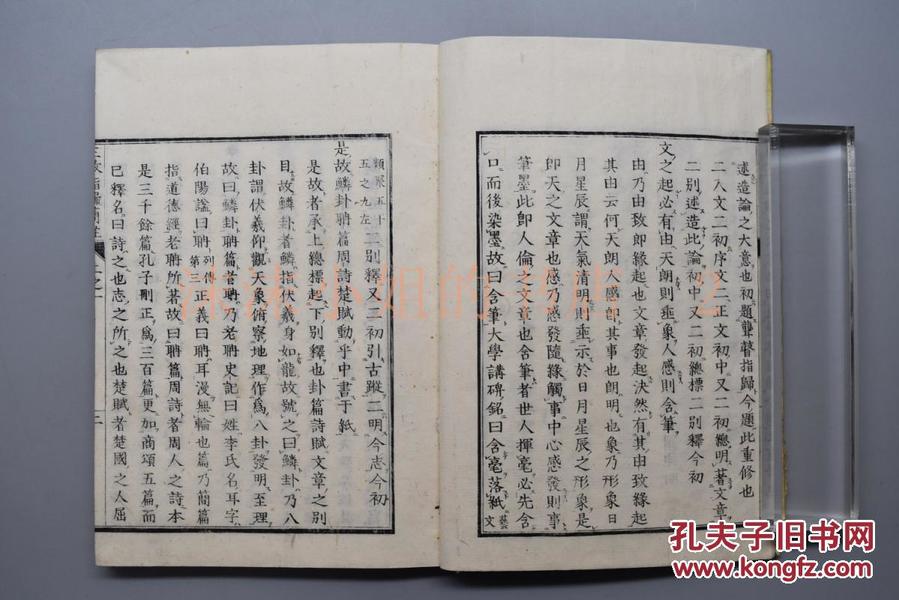 述造論之大意也初題聾瞽指歸今題此重修也
二入文二初序文二正文初中又二初總明著文章
二別述造此論初中又二初總標二別釋今初
文之起必有由天朗則垂象人感則含筆
由乃由致即緣起也文章發起決然有其由致緣起
其由云何天朗人感即其事也朗明也象乃形象日
月星辰謂天氣清明則垂示於日月星辰之形象是
即天之文章也感乃感發隨緣觸事中心感發則事
筆墨此即人倫之文章也含筆者世人揮毫必先含
口而後染墨故曰含筆大學講碑銘曰含毫落紙藝文
類聚五十五之九左二別釋又二初引古蹤二明今志今初
是故鱗卦聃篇周詩楚賦動乎中書于紙
是故者承上總標起下別釋也卦篇詩賦文章之別
目故鱗卦者鱗指伏羲身如龍故號之曰鱗卦乃八
卦謂伏羲仰觀天象俯察地理作爲八卦發明至理
故曰鱗卦聃篇者聃乃老聃史記曰姓李氏名耳字
伯陽諡曰聃列傳第三正義曰聃耳漫無輪也篇乃簡篇
指道德經老聃所著故曰聃篇周詩者周人之詩本
是三千餘篇孔子刪正爲三百篇更加商頌五篇而
已釋名曰詩之也志之所之也楚賦者楚國之人屈
三教指歸
二
沐沐小姐的书店
孔夫子旧书网
www.kongfz.com